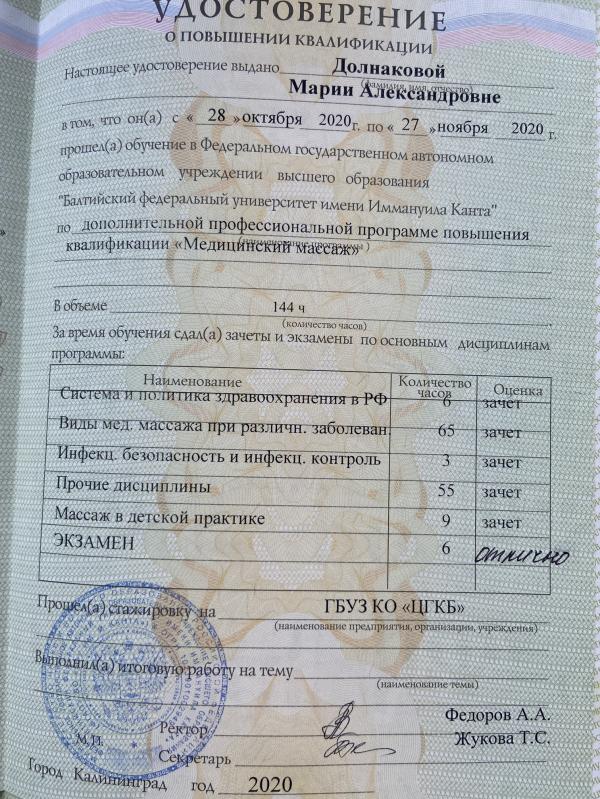 УДОСТОВЕРЕНИЕ
О ПОВЫШЕНИИ КВАЛИФИКАЦИИ
Настоящее удостоверение выдано Долнаковой
(фамилия, имя, отчество)
Марии Александровне
в том, что он(а) с « 28 » октября 2020 г. по « 27 » ноября 2020 г.
прошел(а) обучение в Федеральном государственном автономном
образовательном учреждении высшего образования
"Балтийский федеральный университет имени Иммануила Канта"
по дополнительной профессиональной программе повышения
(наименование программы)
квалификации «Медицинский массаж»
В объеме 144 ч
(количество часов)
За время обучения сдал(а) зачеты и экзамены по основным дисциплинам
программы:
Наименование Количество часов Оценка
Система и политика здравоохранения в РФ 6 зачет
Виды мед. массажа при различн. заболеван. 65 зачет
Инфекц. безопасность и инфекц. контроль 3 зачет
Прочие дисциплины 55 зачет
Массаж в детской практике 9 зачет
ЭКЗАМЕН 6 отлично
Прошел(а) стажировку на ГБУЗ КО «ЦГКБ»
(наименование предприятия, организации, учреждения)
Выполнил(а) итоговую работу на тему
(наименование темы)
Ректор Федоров А.А.
М.П.
Секретарь Жукова Т.С.
Город Калининград год 2020